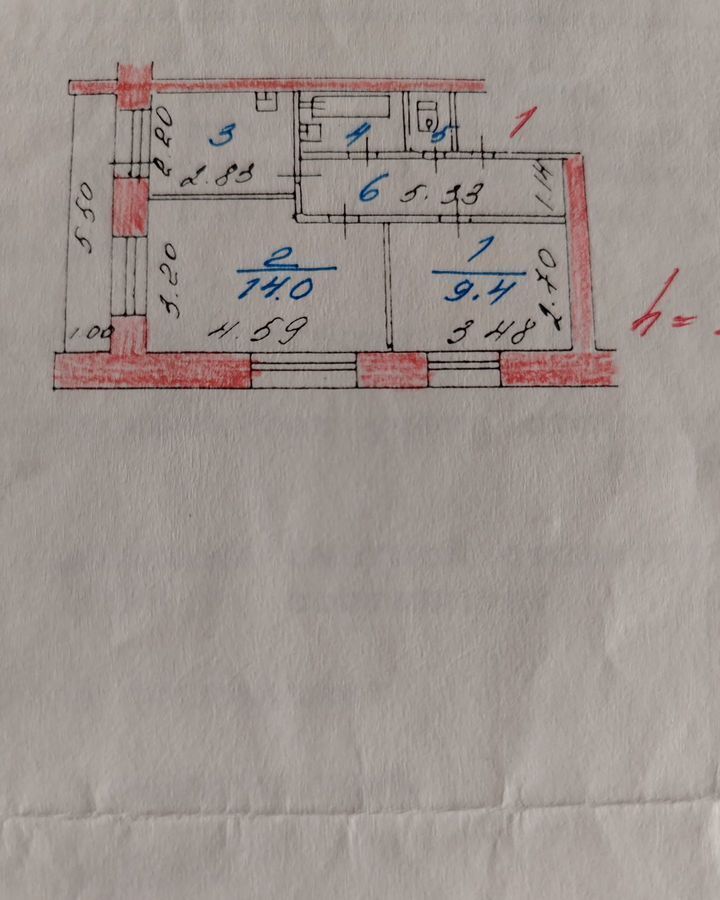 2.20
3
4
5
1
2.83
6
5.33
1.14
5.50
3.20
2
14.0
1
9.4
2.70
1.00
4.59
3.48
h=